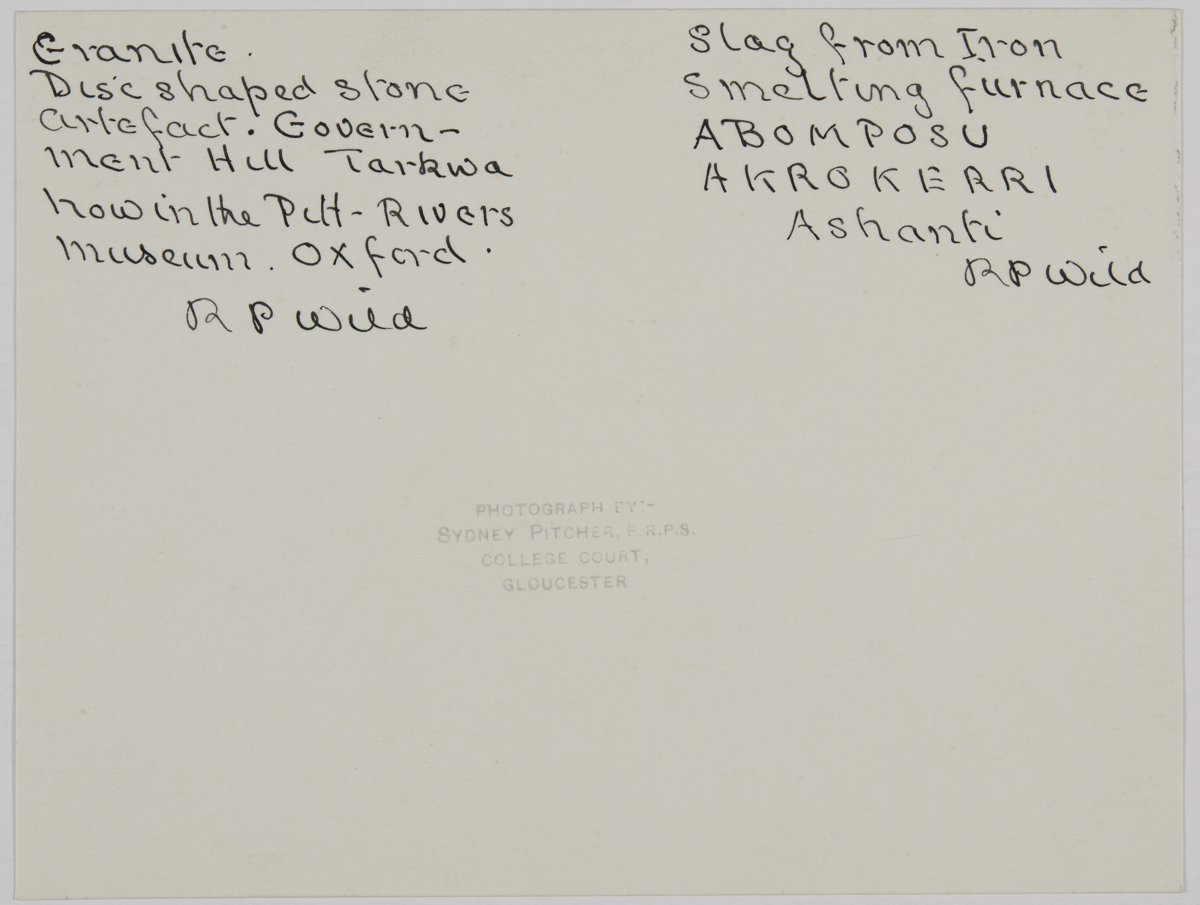 Granite.
Disc shaped stone
artefact. Govern-
ment Hill Tarkwa
now in the Pitt-Rivers
Museum. Oxford.
R P Wild
Slag from Iron
Smelting furnace
ABOMPOSU
AKROKERRI
Ashanti
R P Wild
PHOTOGRAPH BY:-
SYDNEY PITCHER, F.R.P.S.
COLLEGE COURT,
GLOUCESTER